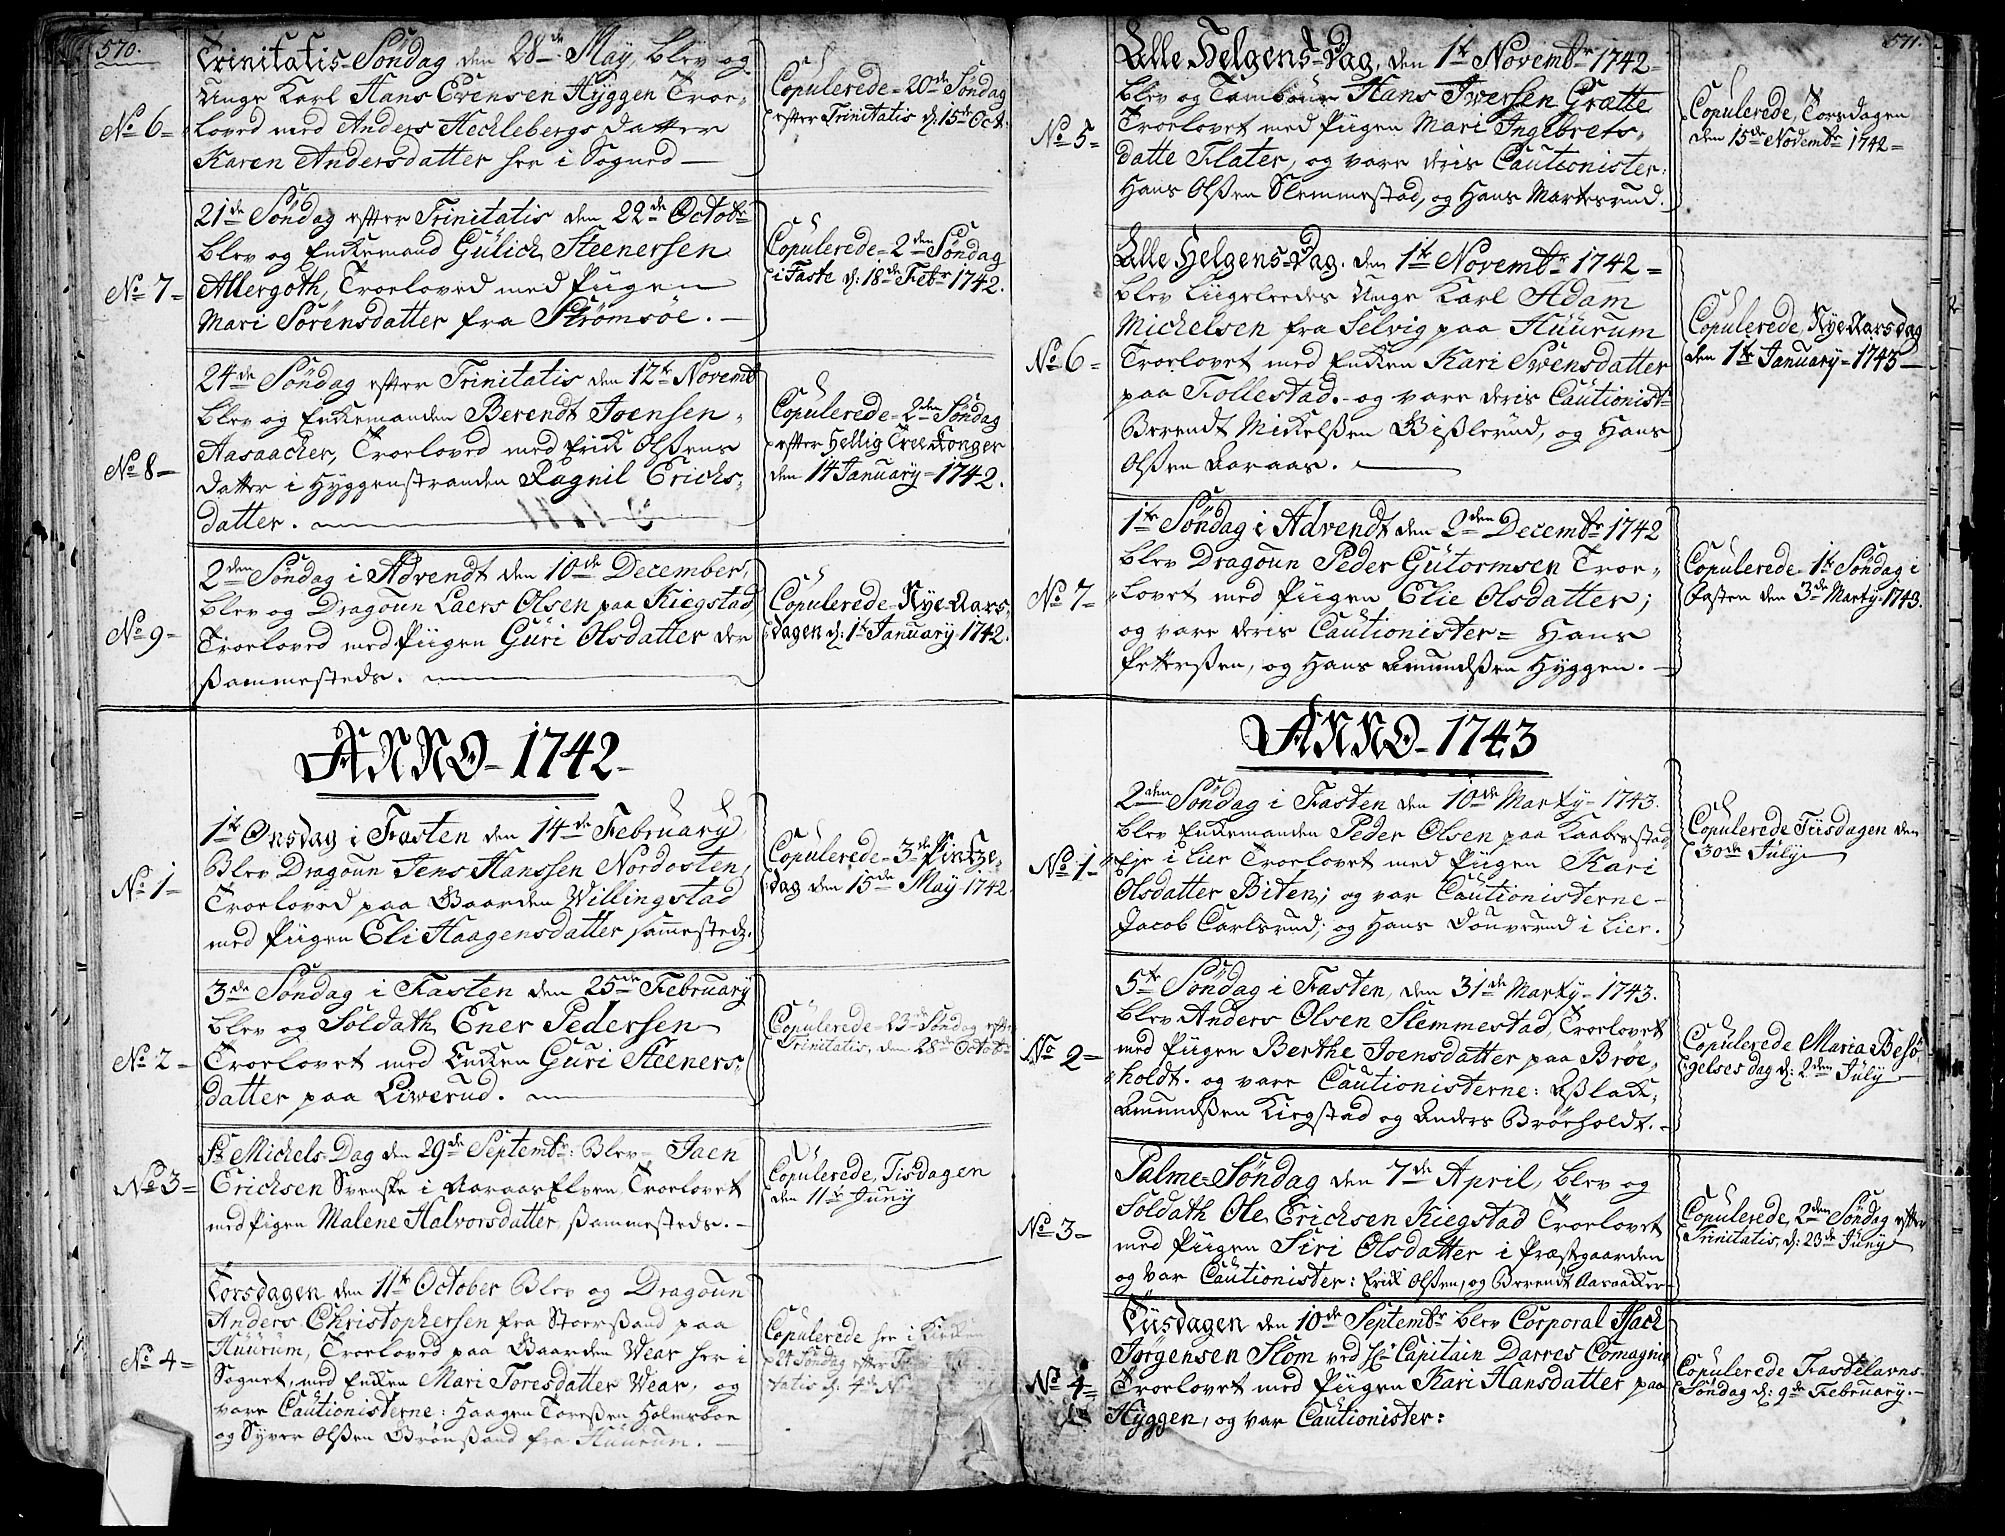 570.
No 6 =
Trinitatis-Söndag den 28de May, blev og
Unge Karl Hans Evensen Hyggen Troe-
loved med Anders Hecklebergs datter
Karen Andersdatter her i Sogned —
Copulerede = 20de Söndag
efter Trinitatis d: 15de Oct.
No 7 =
21de Söndag efter Trinitatis den 22de Octobr
blev og Enkemand Gülich Steenersen
Allergoth, Troeloved med Piigen
Mari Sörensdatter fra Strömsöe. —
Copulerede = 2den Söndag
i Faste d: 18de Febr 1742.
No 8 =
24de Söndag efter Trinitatis den 12te Novemb
blev og Enkemanden Berendt Joensen
Aasaacher, Troeloved med Erik Olßens
datter i Hyggenstranden Ragnil Erichs-
datter. —
Copulerede = 2den Söndag
efter Hellig Tree Konger
den 14 January = 1742.
No 9 =
2den Söndag i Advendt den 10de December,
blev og Dragoun Laers Olsen paa Kiegstad
Troeloved med Piigen Guri Olsdatter der
ßammesteds. —
Copulerede = Nye Aars-
dagen d: 1te January 1742.
ANNO - 1742 -
No 1 =
1te Onsdag i Fasten den 14de February
Blev Dragoun Jens Hanssen Nordosten,
Troeloved paa Gaarden Willingstad
med Piigen Eli Haagensdatter sammesteds.
Copulerede = 3de Pintze-
dag den 15de May 1742.
No 2 =
3de Söndag i Fasten den 25de February
blev og Soldath Ener Pedersen
Troelovet med Enken Guri Steeners-
datter paa Liverud. —
Copulerede = 23de Söndag efter
Trinitatis, den 28de Octob
No 3 =
St Michels Dag den 29de Septembr: Blev Jaen
Erichsen Svenske i Aaraas Elven, Troelovet
med Pigen Malene Halvorsdatter, ßammesteds. —
Copulerede, Tisdagen
den 11te Juny
No 4 =
Torsdagen den 11te October Blev og Dragoun
Anders Christophersen fra Storsand paa
Huurum, Troeloved paa Gaarden Wear her i
Sognet, med Enken Mari Toresdatter Wear, og
vare Cautionisterne: Haagen Toreßen Holmsboe
og Syver Olßen Brönßand fra Huurum. —
Copulerede her i Kirken
24 Söndag efter
tatis d: 4de
571.
No 5 =
Alle Helgens-Dag, den 1te Novembr 1742 =
blev og Tambour Hans Iversen Gratte
Troelovet med Piigen Mari Ingebrets-
datte Klater, og vare deris Cautionister:
Hans Olßen Slemmestad, og Hans Martesrud.
Copulerede, Torsdagen
den 15de Novembr 1742 =
No 6 =
Alle Helgens-Dag. den 1te Novembr 1742 =
blev liigeleedes Unge Karl Adam
Michelsen fra Selvig paa Huurum
Troelovet med Enken Kari Svensdatter
paa Follestad. og vare deris Cautionist:
Berendt Mickelßen Gißlerud, og Hans
Olßen Aaraas. —
Copulerede, Nye Aarsdag
den 1te January = 1743 —
No 7 =
1te Söndag i Advendt den 2den Decembr 1742
blev Dragoun Peder Gutormsen Troe-
lovet med Piigen Elie Olsdatter;
og vare deris Cautionister = Hans
Petterßen, og Hans Amundßen Hyggen. —
Copulerede 1te Söndag i
Fasten den 3de Marty. 1743.
ANNO - 1743
No 1 =
2den Söndag i Fasten den 10de Marty = 1743.
blev Enkemanden Peder Olsen paa Kaaberstad
Eje i Lier Troelovet med Piigen Kari
Olsdatter Biten; og var Cautionisterne —
Jacob Carlsrud; og Hans Douverud i Lier.
Copulerede Tiisdagen den
30de July
No 2 =
5te Söndag i Fasten, den 31de Marty = 1743.
blev Anders Olsen Slemmestad, Troelovet
med Piigen Berthe Joensdatter paa Bröe-
holdt. og vare Cautionisterne: Aßlack
Amundßen Kiegstad og Anders Bröeholdt. —
Copulerede Maria Besö-
gelses dag d: 2den July
No 3 =
Palme-Söndag den 7de April, blev og
Soldath Ole Erichsen Kiegstad Troelovet
med Piigen Siri Olsdatter i Præstgaarden
og var Cautionister: Erick Olßen, og Berendt Aasaacker —
Copulerede, 2den Söndag efter
Trinitatis, d: 23de Juny
No 4 =
Tiisdagen den 10de Septembr blev Corporal Isach
Jörgensen Slom ved Capitain Darres Comagnie
Troelovet med Piigen Kari Hansdatter paa
Hyggen, og var Cautionister:
Copulerede Fastelavns-
Söndag d: 9de February. —